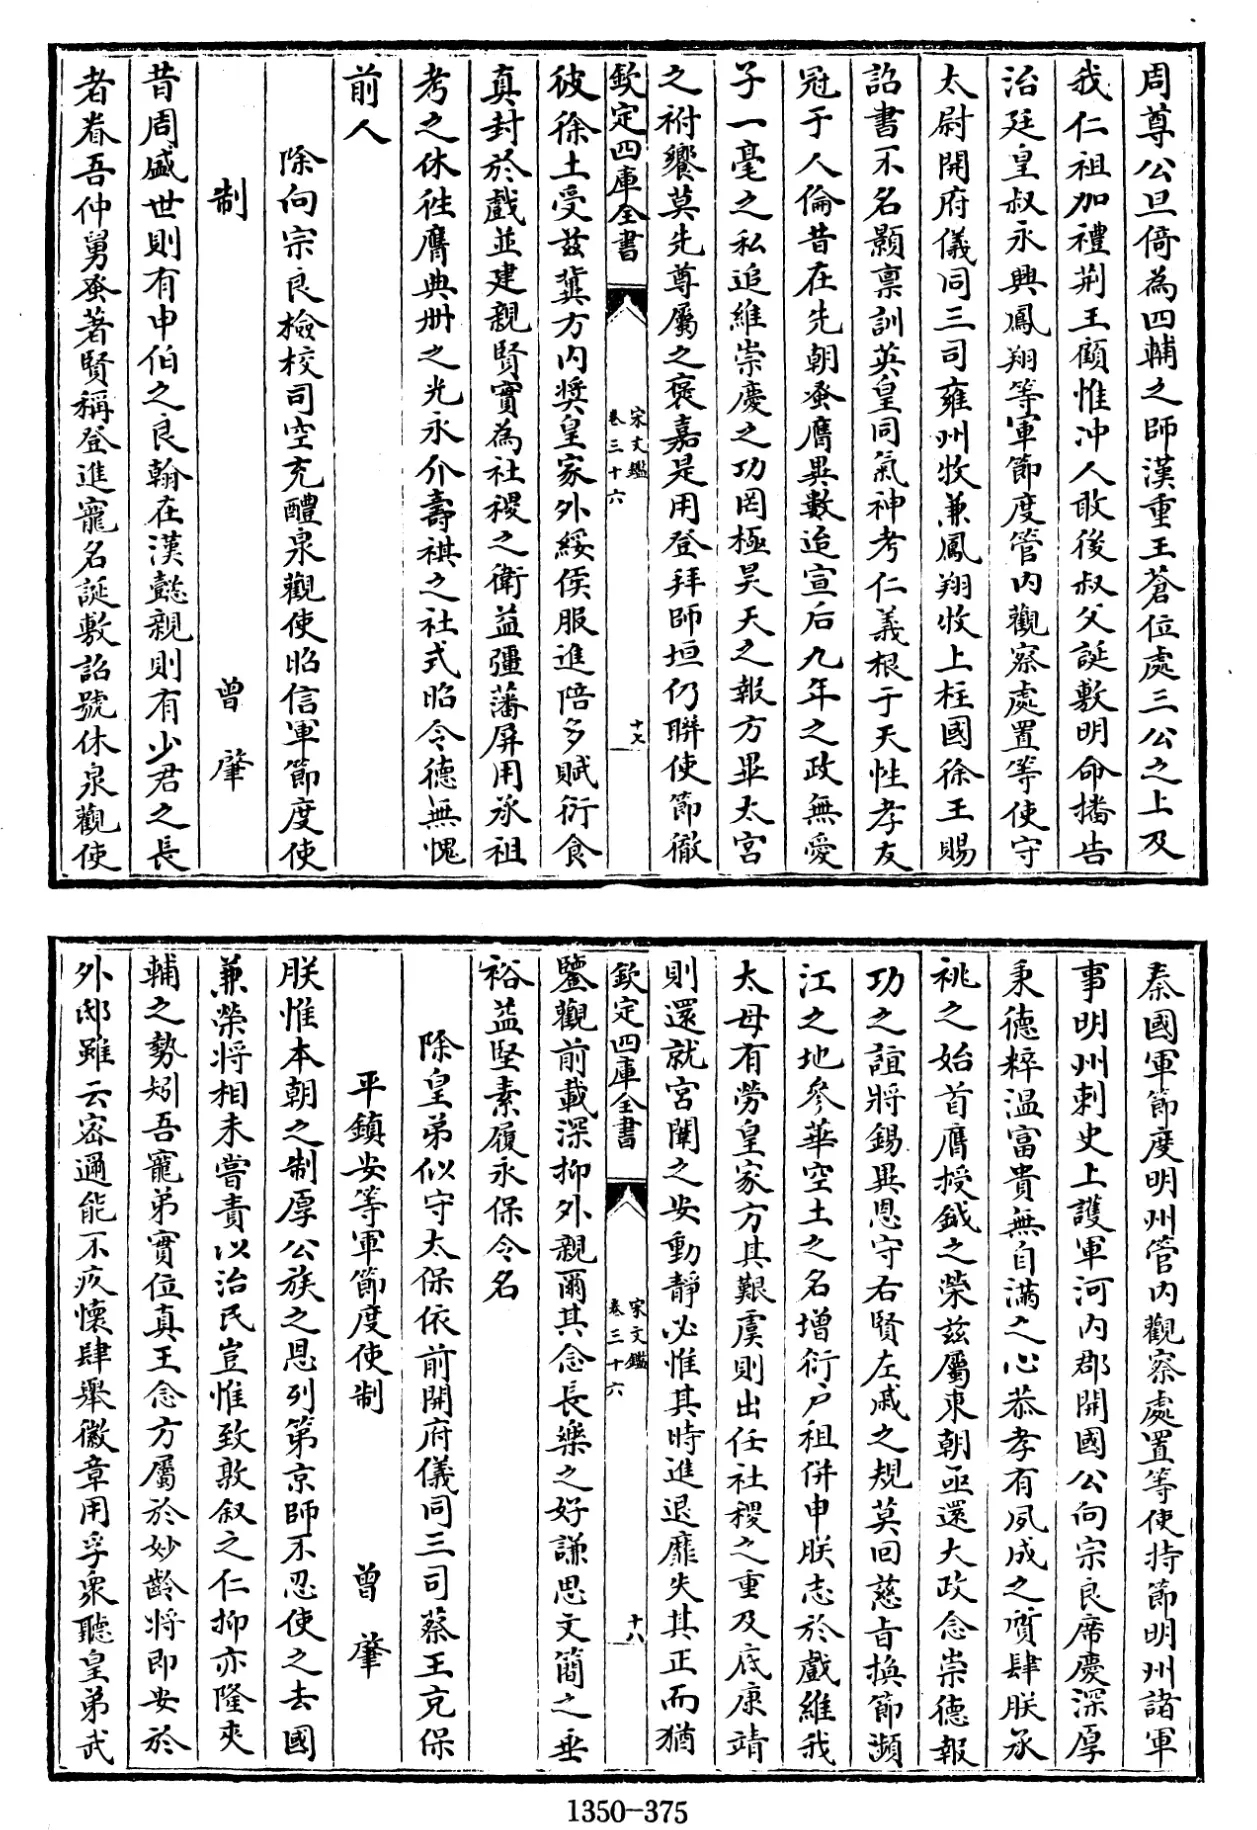 周尊公旦倚為四輔之師漢重王蒼位處三公之上及
我仁祖加禮荆王顧惟沖人敢後叔父誕敷明命播告
治廷皇叔永興鳳翔等軍節度管内觀察處置等使守
太尉開府儀同三司雍州牧兼鳳翔牧上柱國徐王賜
詔書不名顥禀訓英皇同氣神考仁義根于天性孝友
冠于人倫昔在先朝蚤膺異數迨宣后九年之政無愛
子一毫之私追維崇慶之功罔極昊天之報方畢太宮
之祔饗莫先尊屬之褒嘉是用登拜師垣仍聨使節徹
欽定四庫全書
宋文鑑
卷三十六
十七
彼徐土受兹冀方内奨皇家外綏侯服進陪多賦衍食
真封於戲並建親賢實為社稷之衛益彊藩屏用承祖
考之休徃膺典册之光永介壽祺之社式昭令德無愧
前人
除向宗良檢校司空充醴泉觀使昭信軍節度使
制
曾肇
昔周盛世則有申伯之良翰在漢懿親則有少君之長
者眷吾仲舅蚤著賢稱登進寵名誕敷詔號休泉觀使
秦國軍節度明州管内觀察處置等使持節明州諸軍
事明州刺史上護軍河内郡開國公向宗良席慶深厚
秉德粹温富貴無自滿之心恭孝有夙成之質肆朕承
祧之始首膺授鉞之榮兹屬東朝亟還大政念崇德報
功之誼將錫異恩守右賢左戚之規莫回慈旨換節瀕
江之地參華空土之名增衍户租併申朕志於戲維我
太母有勞皇家方其艱虞則出任社稷之重及底康靖
則還就宮闈之安動靜必惟其時進退靡失其正而猶
欽定四庫全書
宋文鑑
卷三十六
十八
鑒觀前載深抑外親爾其念長樂之好謙思文簡之垂
裕益堅素履永保令名
除皇弟似守太保依前開府儀同三司蔡王充保
平鎮安等軍節度使制
曾肇
朕惟本朝之制厚公族之恩列第京師不忍使之去國
兼榮將相未嘗責以治民豈惟致敦叙之仁抑亦隆夾
輔之勢矧吾寵弟實位真王念方屬於妙齡將即安於
外邸雖云密邇能不疚懷肆舉徽章用孚衆聽皇弟武
1350-375